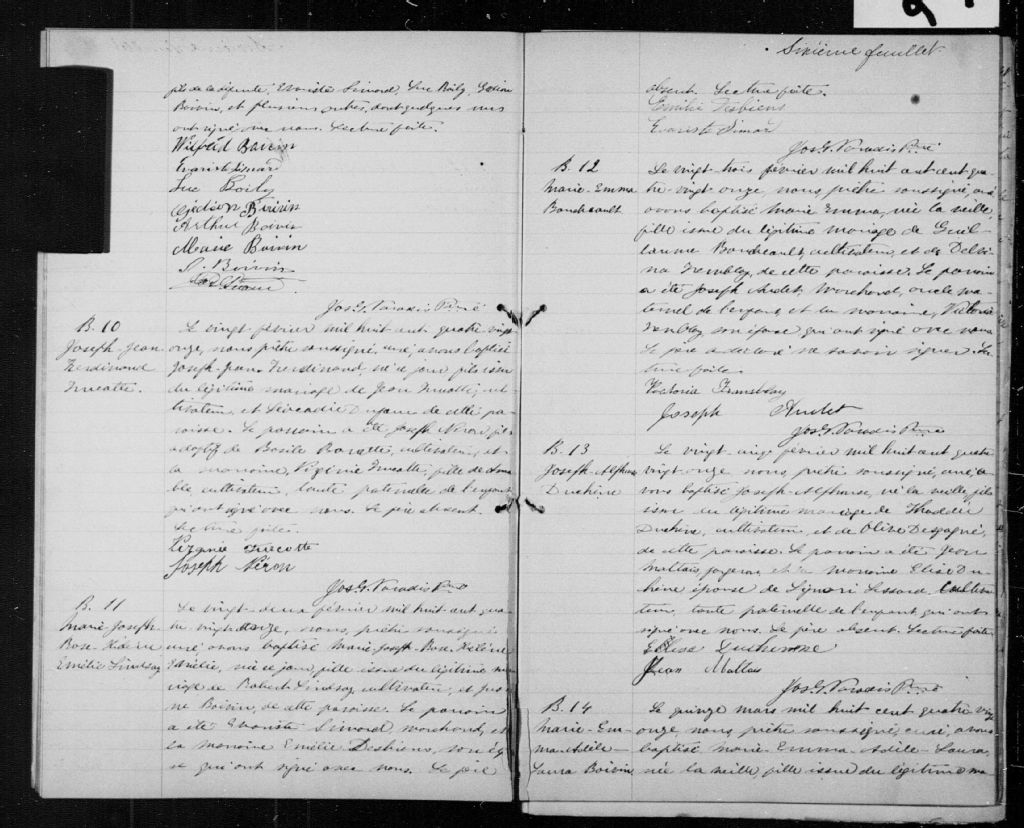 fils de la défunte, Evariste Simard, Luc Boily, Gédéon
Boivin, et plusieurs autres, dont quelques uns
ont signé avec nous. Lecture faite.
Wilfrid Boivin
Evariste Simard
Luc Boily
Gédéon Boivin
Arthur Boivin
Marie Boivin
Boivin
Jos. G. Paradis Ptre
B. 10
Joseph-Jean
Ferdinand
Turcotte.
Le vingt février mil huit cent quatre vingt
onze, nous, prêtre soussigné, curé, avons baptisé
Joseph-Jean Ferdinand, né ce jour, fils issu
du légitime mariage de Jean Turcotte, cul-
tivateur, et Léocadie Dufour de cette pa-
roisse. Le parrain a été Joseph Néron, fils
adoptif de Basile cultivateur, et
la marraine, Virginie Turcotte, fille de
cultivateur, tante paternelle de l'enfant
qui ont signé avec nous. Le père absent.
Lecture faite.
Virginie Turcotte
Joseph Néron
Jos. G. Paradis Ptre
B. 11
Marie Joseph-
Rose-Hélène
Emélie Lindsay
Le vingt-deux février mil huit cent qua-
tre vingt onze, nous, prêtre soussigné
curé, avons baptisé Marie-Joseph-Rose-Hélène
Emélie, née ce jour, fille issue du légitime ma-
riage de Robert Lindsay, cultivateur, et
Boivin, de cette paroisse. Le parrain
a été Evariste Simard, marchand, et
la marraine Emélie Desbiens, son épou-
se qui ont signé avec nous. Le père
Sixième feuillet.
absent. Lecture faite.
Emilie Desbiens
Evariste Simard
Jos. G. Paradis Ptre
B. 12
Marie-Emma
Boudreault
Le vingt-trois février mil huit cent qua-
tre-vingt onze nous, prêtre soussigné, curé
avons baptisé Marie Emma, née la veille,
fille issue du légitime mariage de Guil-
laume Boudreault, cultivateur, et de Delvi-
na Tremblay, de cette paroisse. Le parrain
a été Joseph Audet, marchand, oncle ma-
ternel de l'enfant et la marraine, Victoria
Tremblay son épouse qui ont signé avec nous.
Le père a déclaré ne savoir signer. Lec-
ture faite.
Victoria Tremblay
Joseph Audet
Jos. G. Paradis Ptre
B. 13
Joseph-Alphonse
Duchêne
Le vingt février mil huit cent quatre
vingt onze nous, prêtre soussigné, curé a-
vons baptisé Joseph-Alphonse, né la veille, fils
issu du légitime mariage de Thaddée
Duchêne, cultivateur, et de Olive Desgagné,
de cette paroisse. Le parrain a été Jean
Maltais, et la marraine Elise Du-
chêne épouse de Lessard, cultiva-
teur, tante paternelle de l'enfant qui ont
signé avec nous. Le père absent. Lecture faite
Elise Duchesne
Jean Maltais
Jos. G. Paradis Ptre
B. 14
Marie-Em-
ma Adèle-
Laura Boivin
Le quinze mars mil huit cent quatre vingt
onze, nous, prêtre soussigné, curé, avons
baptisé Marie-Emma-Adèle-Laura
née la veille, fille issue du légitime ma